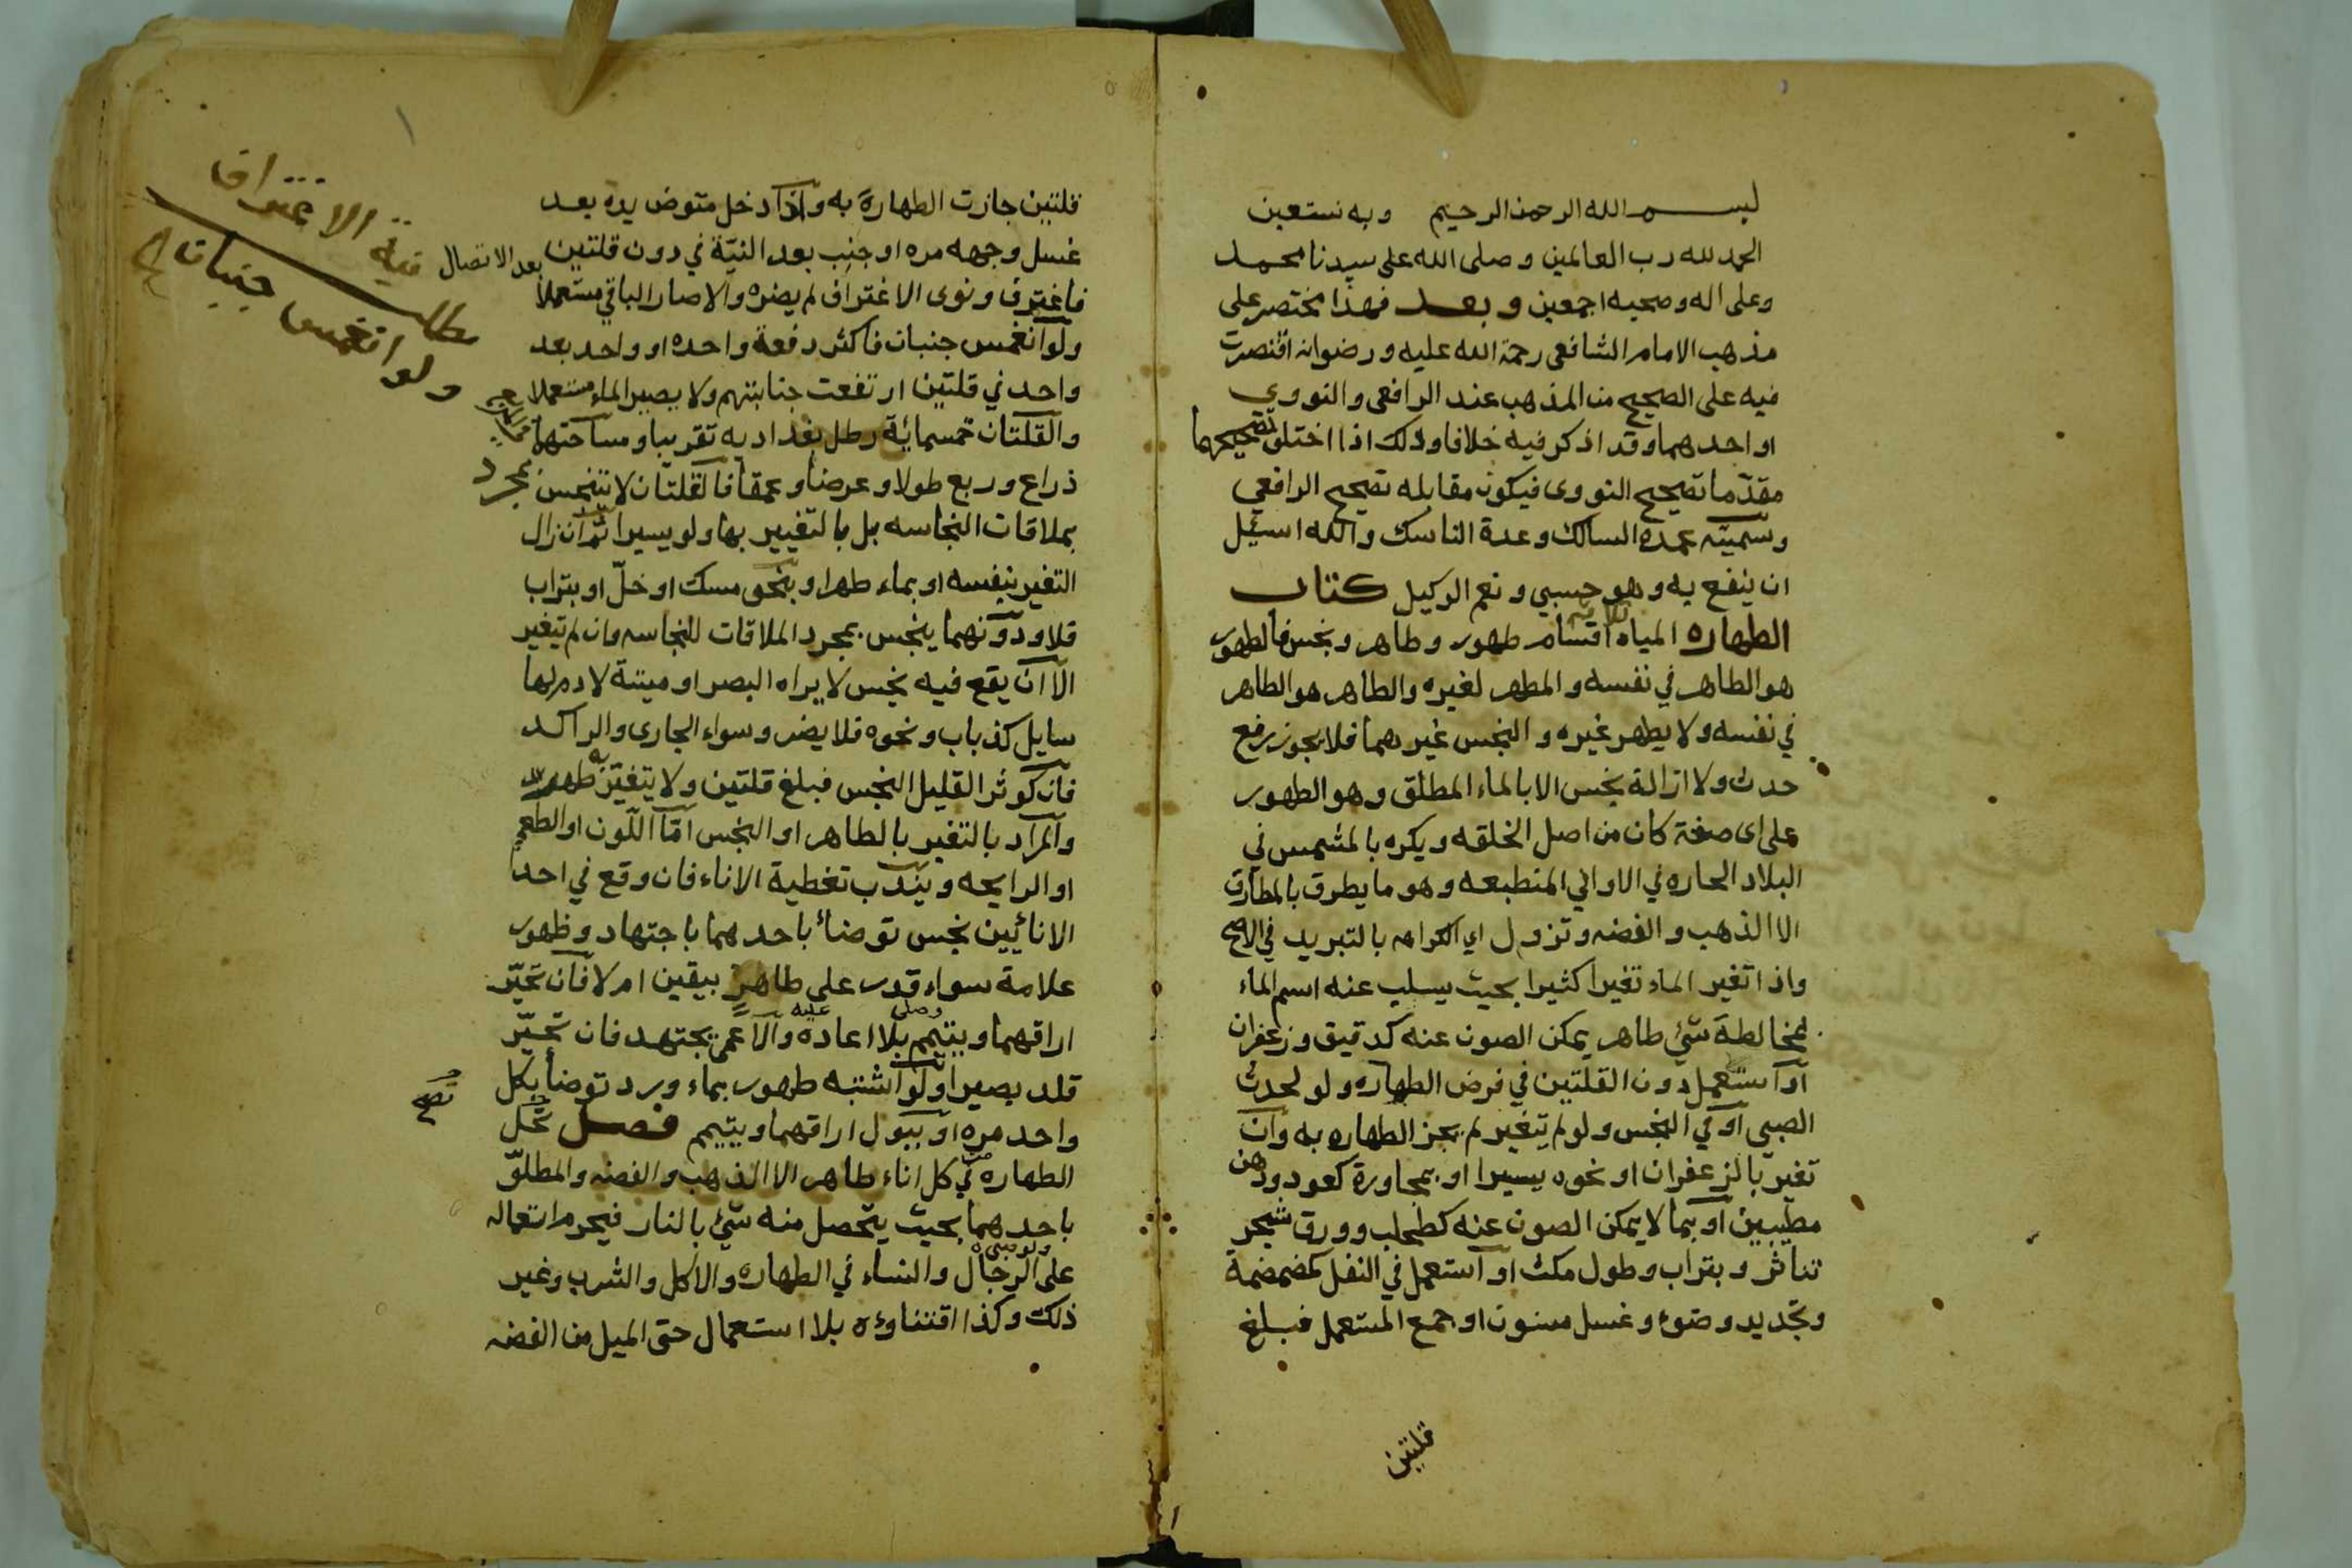 بسم الله الرحمن الرحيم وبه نستعين
الحمد لله رب العالمين وصلى الله على سيدنا محمد
وعلى اله وصحبه اجمعين وبعد فهذا مختصر على
مذهب الامام الشافعى رحمة الله عليه ورضوانه اقتصرت
فيه على الصحيح من المذهب عند الرافعى والنووى
او احدهما وقد اذكر فيه خلافا وذلك اذا اختلف تصحيحهما
مقدّما تصحيح النووى فيكون مقابله تصحيح الرافعي
وسمّيته عمدة السالك وعدة الناسك والله اسئل
ان ينفع به وهو حسبي ونعم الوكيل كتاب
الطهاره المياه ثلاثة اقسام طهور وطاهر ونجس فالطهور
هو الطاهر في نفسه والمطهر لغيره والطاهر هو الطاهر
في نفسه ولا يطهر غيره والنجس غيرهما فلا يجوز رفع
حدث ولا ازالة نجس الا بالماء المطلق وهو الطهور
على اى صفة كان من اصل الخلقه ويكره بالمشمس في
البلاد الحاره في الاواني المنطبعه وهو ما يطرق بالمطارق
الا الذهب والفضه وتزول اي الكراهه بالتبريد في الاصح
واذا تغير الماء تغيرا كثيرا بحيث يسلب عنه اسم الماء
لمخالطة شئ طاهر يمكن الصون عنه كدقيق وزعفران
او استعمل دون القلتين في فرض الطهاره ولو لحدث
الصبى او في النجس ولو لم يتغير لم يجز الطهاره به وان
تغير بالزعفران او نحوه يسيرا او بمجاورة كعود ودهن
مطيبين او بما لا يمكن الصون عنه كطحلب وورق شجر
تناثر وبتراب وطول مكث او استعمل في النفل كمضمضة
وتجديد وضوء وغسل مسنون او جمع المستعمل فبلغ
قلتين
قلتين جازت الطهارة به واذا ادخل متوض يده بعد
غسل وجهه مره او جنب بعد النيّة في دون قلتين
فاغترف ونوى الاغتراف لم يضره والا صار الباقي مستعملا
بعد الانفصال
ولو انغمس جنبان فاكثر دفعة واحده او واحد بعد
واحد في قلتين ارتفعت جنابتهم ولا يصير الماء مستعملا
والقلتان خمسمائة رطل بغداديه تقريبا ومساحتهما
ذراع وربع طولا وعرضا وعمقا فالقلتان لا تنجس بمجرد
بملاقات النجاسه بل بالتغيير بها ولو يسيرا ثم ان زال
التغير بنفسه او بماء طهر او بنحو مسك او خلّ او بتراب
فلا ودونهما ينجس بمجرد الملاقات للنجاسه وان لم تيغير
الا ان يقع فيه نجس لا يراه البصر او ميتة لا دم لها
سايل كذباب ونحوه فلا يضر وسواء الجارى والراكد
فان كوثر القليل النجس فبلغ قلتين ولا يتغيّر به طهور
والمراد بالتغير بالطاهر او النجس امّا اللّون او الطعم
او الرايحه ويندب تغطية الاناء فان وقع في احد
الانائيين نجس توضأ باحدهما باجتهاد وظهور
علامة سواء قدر على طاهرٍ بيقين ام لا فان تحيّر
اراقهما ويتيمم وصلى بلا اعاده عليه والاعمى يجتهد فان تحيّر
قلد بصيرا ولو اشتبه طهور بماء ورد توضأ بكل
واحد مره او ببول اراقهما ويتيمم فصل تحل
الطهاره من كل اناء طاهر الا الذهب والفضه والمطلىّ
باحدهما بحيث يتحصل منه شئ بالنار فيحرم استعماله
على الرجال والنساء في الطهاره والاكل والشرب وغير
ذلك وكذا اقتناؤه بلا استعمال حتى الميل من الفضه
نية الاغتراف
مطلب
ولو انغمس جنبان